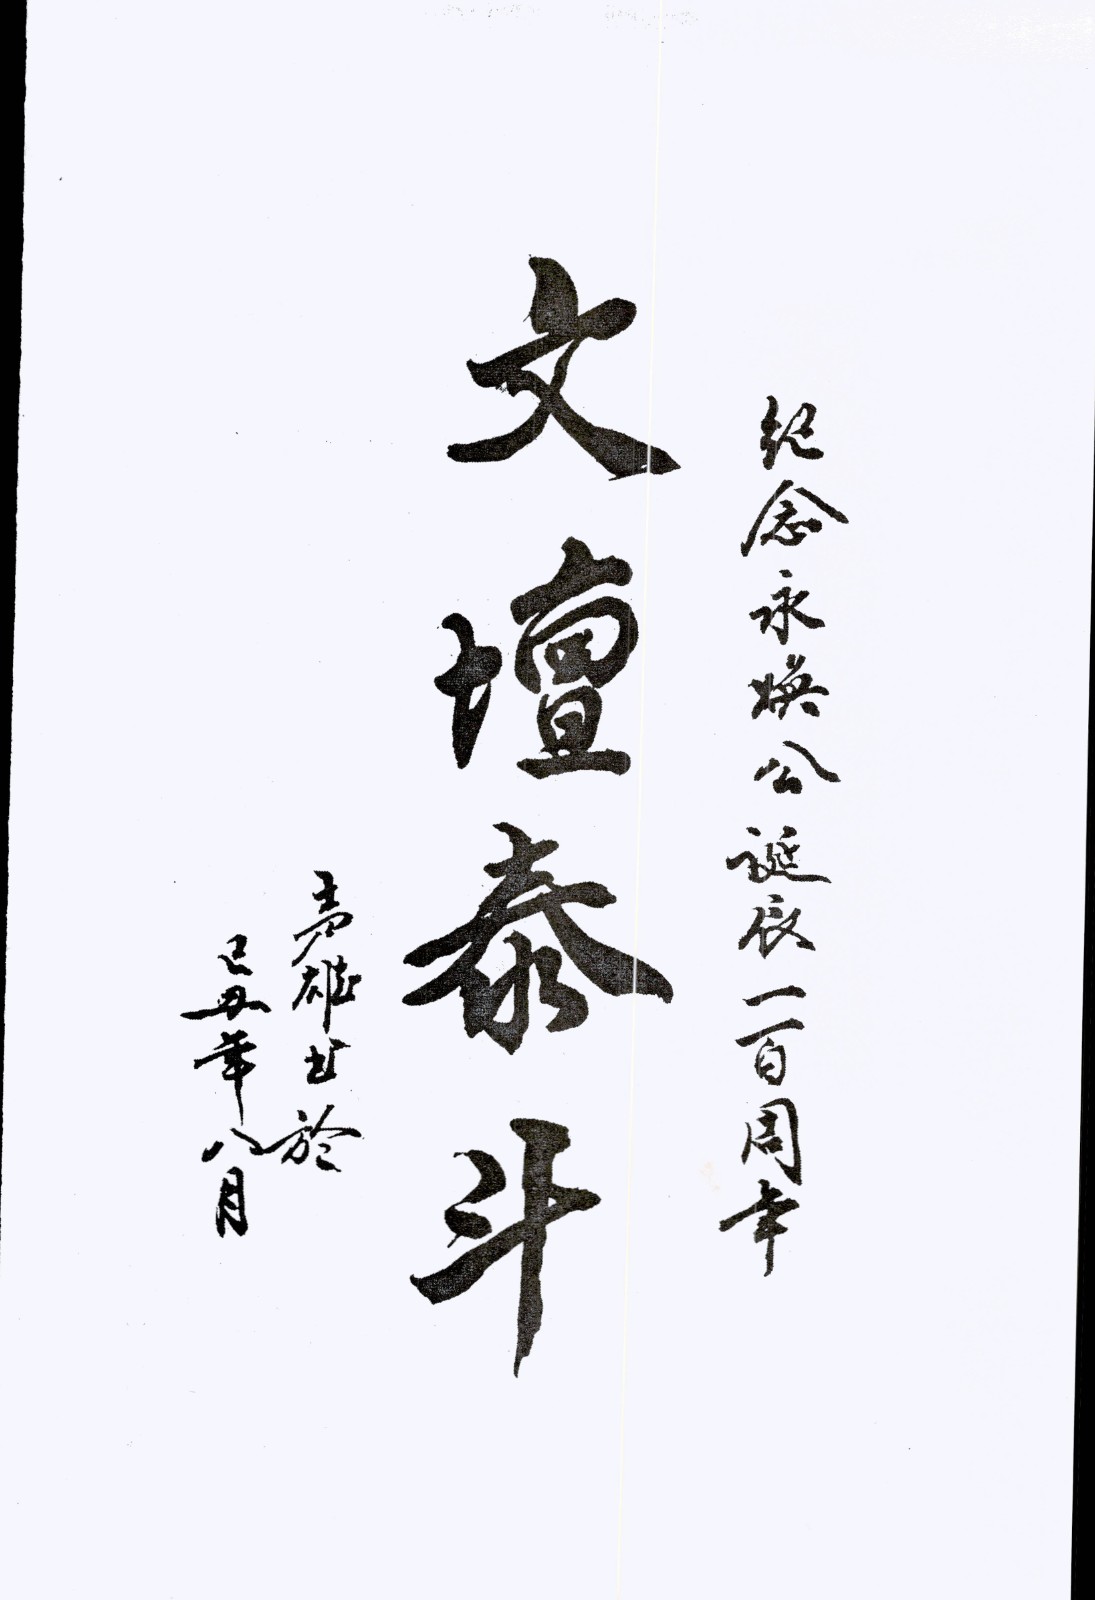 纪念永焕公诞辰一百周年
文壇泰斗
雄书於
己丑年八月